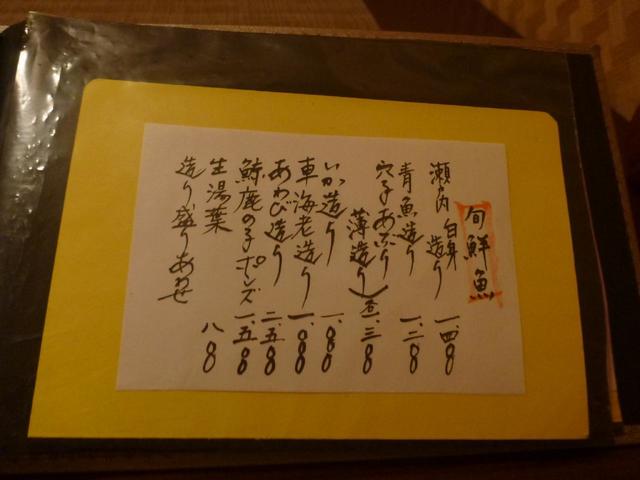 旬鮮魚
瀬戸内 白身 造り 一、四〇〇
青魚造り 一、二〇〇
穴子あぶり
薄造り 各一、三〇〇
いか造り 一、〇〇〇
車海老造り 一、〇〇〇
あわび造り 二、五〇〇
鯨鹿の子ポンズ 一、五〇〇
生湯葉 八〇〇
造り盛りあわせ